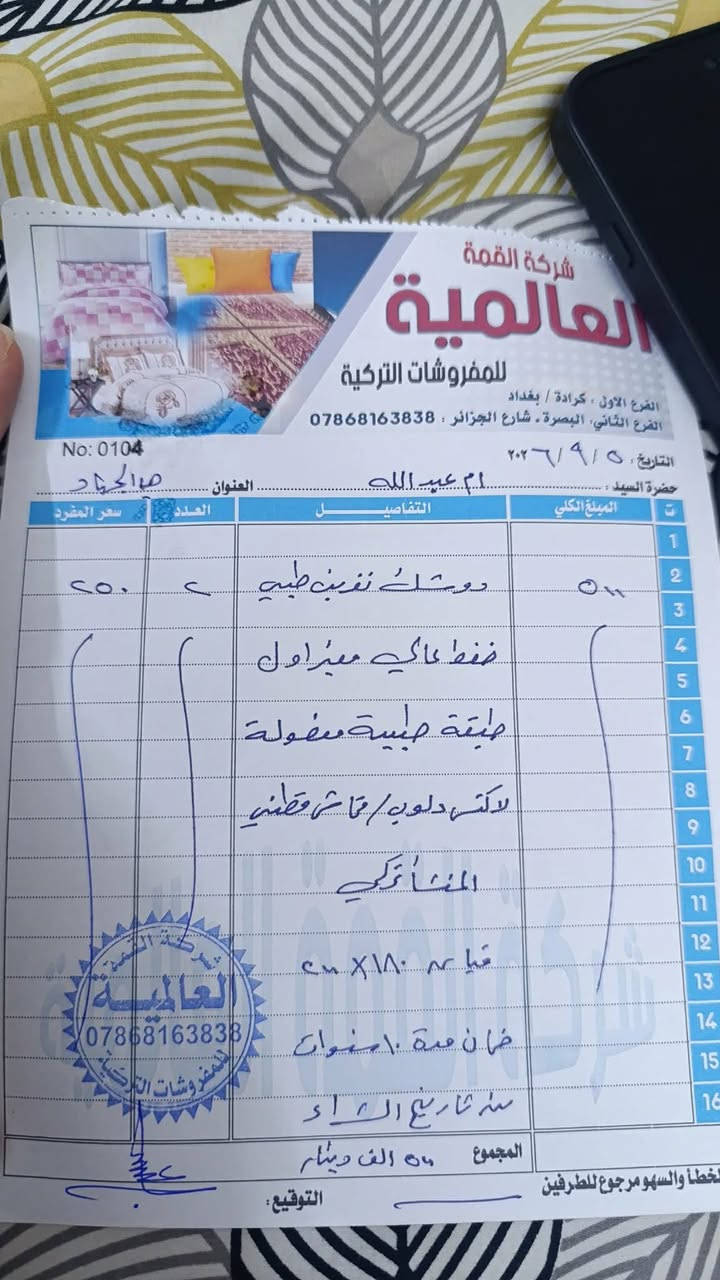 شركة القمة
العالمية
للمفروشات التركية
الفرع الاول : كرادة / بغداد
الفرع الثاني: البصرة - شارع الجزائر : 07868163838
No: 0104
التاريخ: ٥ / ٩ / ٢٠٢٦
حضرة السيد: ام عبدالله العنوان
ت المبلغ الكلي التفاصيل العدد سعر المفرد
1
2 ٥٠٠ دوشك نفرين طبي ٢ ٢٥٠
3
4 ضغط عالي ميز اول
5
6 طبقة طبية معزولة
7
8 لاكتس دلوب / قماش قطني
9
10 المنشأ تركي
11
12 قياس ٢٠٠ × ١٨٠
13
14 ضمان مدة ١٠ سنوات
15
16 من تاريخ الشراء
المجموع ٥٠٠ الف دينار
الخطأ والسهو مرجوع للطرفين
التوقيع:
شركة القمة
العالمية
07868163838
للمفروشات التركية
شركة القمة العالمية